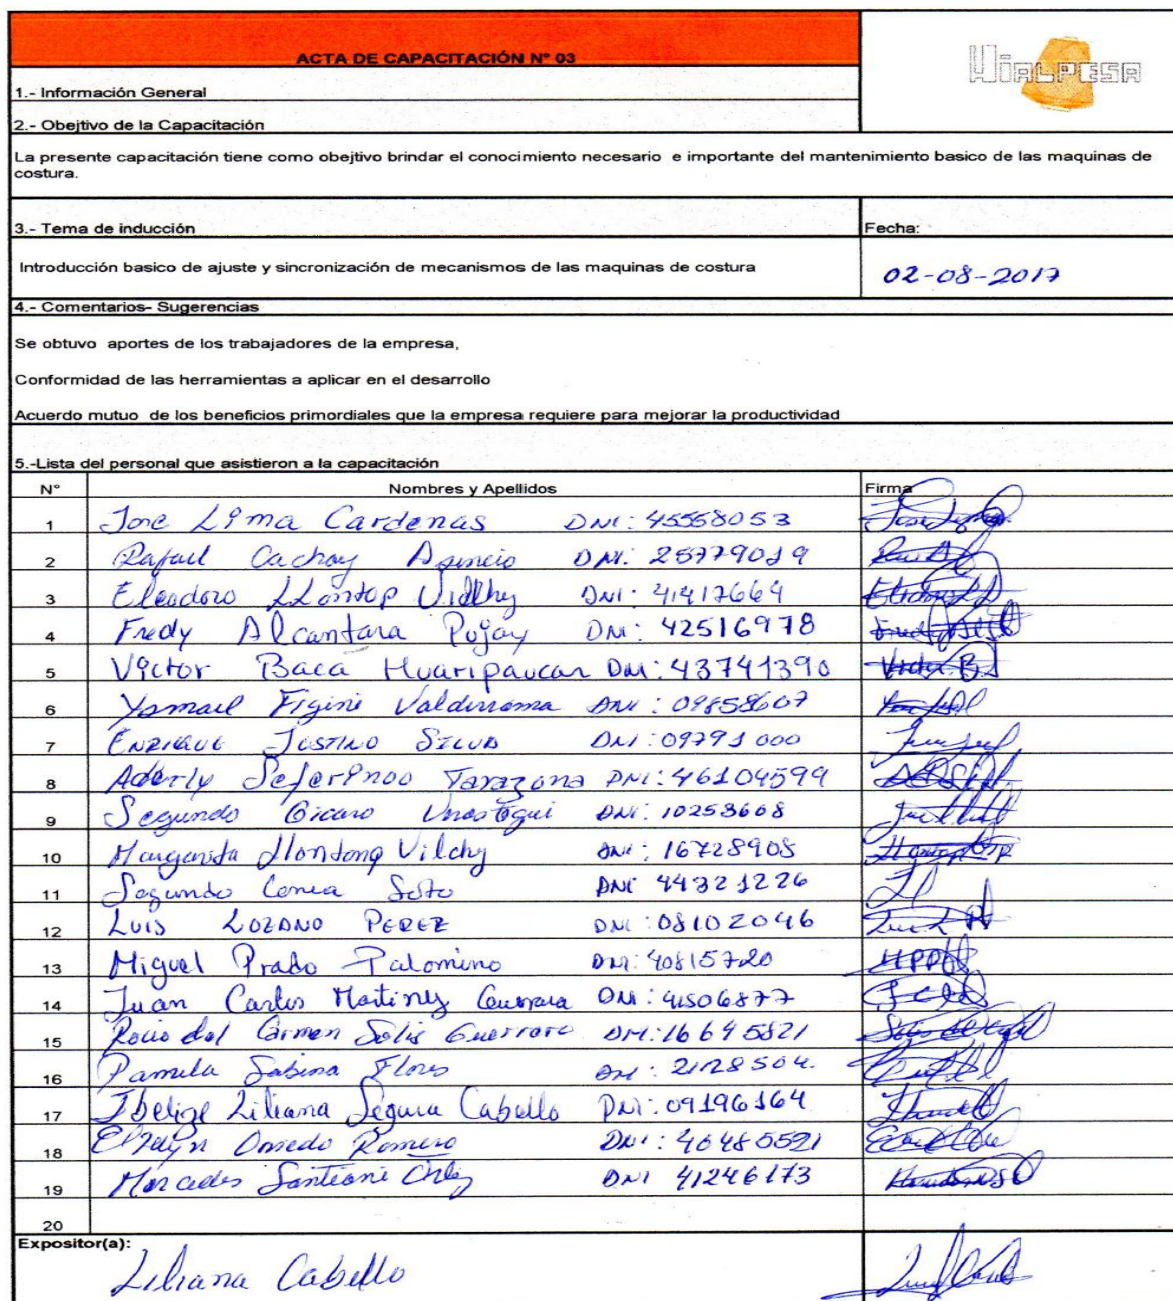 ACTA DE CAPACITACIÓN N° 03
HIALPESA
1.- Información General
2.- Obejtivo de la Capacitación
La presente capacitación tiene como obejtivo brindar el conocimiento necesario e importante del mantenimiento basico de las maquinas de
costura.
3.- Tema de inducción Fecha:
Introducción basico de ajuste y sincronización de mecanismos de las maquinas de costura 02-08-2017
4.- Comentarios- Sugerencias
Se obtuvo aportes de los trabajadores de la empresa,
Conformidad de las herramientas a aplicar en el desarrollo
Acuerdo mutuo de los beneficios primordiales que la empresa requiere para mejorar la productividad
5.-Lista del personal que asistieron a la capacitación
N° Nombres y Apellidos Firma
1 Jose Lima Cardenas DNI: 45558053
2 Rafael Cachay DNI: 25779019
3 Eleodoro LLontop DNI: 41417669
4 Fredy Alcantara Pujay DNI: 42516978
5 Victor Baca Huaripaucar DNI: 43741390
6 Figini Valderrama DNI: 09858607
7 ENRIQUE JUSTINO DNI: 09791000
8 Aderly Seferinoo Tarazona DNI: 46104599
9 Segundo DNI: 10253608
10 Margarita DNI: 16728908
11 Segundo Correa Soto DNI 44321226
12 LUIS LOZANO PEREZ DNI: 08102046
13 Miguel Prado Palomino DNI: 40815720
14 Juan Carlos Martinez Guerrara DNI: 41506877
15 Rocio del Carmen Solis Guerrero DNI: 16645821
16 Pamela Sabina Flores DNI: 21128504
17 Ibelize Liliana Segura Cabello DNI: 09196164
18 Romero DNI: 40485521
19 Mercedes DNI 41246173
20
Expositor(a):
Liliana Cabello